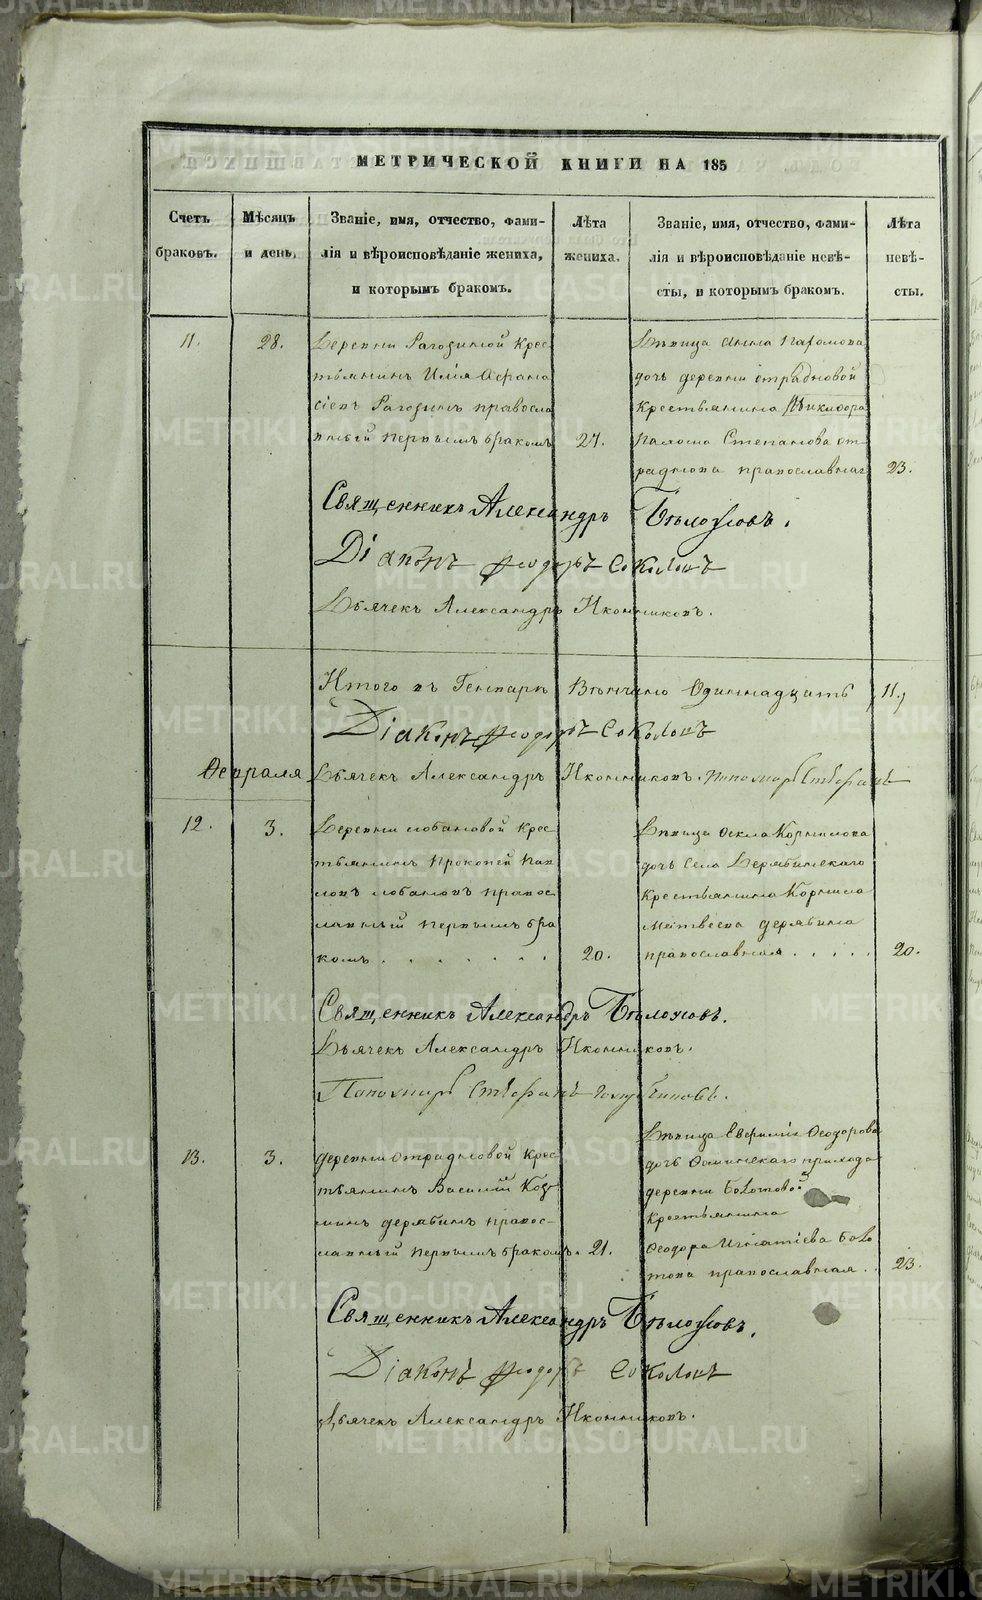 МЕТРИЧЕСКОЙ КНИГИ НА 185
Счетъ браковъ.
Мѣсяцъ и день.
Званіе, имя, отчество, фами-
лія и вѣроисповѣданіе жениха,
и которымъ бракомъ.
Лѣта жениха.
Званіе, имя, отчество, фами-
лія и вѣроисповѣданіе невѣ-
сты, и которымъ бракомъ.
Лѣта невѣ-
сты.
11.
28.
Деревни Рагозиной Крес
тьянинъ Илія Афана
сіевъ Рагозинъ правосла
вный первымъ бракомъ
27.
Дѣвица Анна
дочь деревни отрадновой
Крестьянина
Степанова от
раднова православная
23.
Священникъ Александръ Бѣлоусовъ.
Діаконъ Ѳеодоръ Соколовъ
Дьячекъ Александръ Иконниковъ.
Итого въ Генварѣ Вѣнчано Одиннадцать 11.
Діаконъ Ѳеодоръ Соколовъ
Февраля
Дьячекъ Александръ Иконниковъ. Пономарь Стефанъ
12.
3.
Деревни лобановой Крес
тьянинъ Прокопей Пав
ловъ лобановъ правос
лавный первымъ бра
комъ
20.
Дѣвица Фекла Корнилова
дочь Села Дерябинскаго
Крестьянина Корнила
Матвеева дерябина
православная
20.
Священникъ Александръ Бѣлоусовъ.
Дьячекъ Александръ Иконниковъ.
Пономарь Стефанъ
13.
3.
деревни отрадновой Крес
тьянинъ Василій Коз
минъ дерябинъ правос-
лавный первымъ бракомъ.
21.
Дѣвица Евфимія Феодорова
дочь Фоминскаго прихода
деревни Болотовой
Крестьянина
Феодора Игнатіева Боло
това православная
23.
Священникъ Александръ Бѣлоусовъ.
Діаконъ Ѳеодоръ Соколовъ
Дьячекъ Александръ Иконниковъ.
METRIKI.GASO-URAL.RU